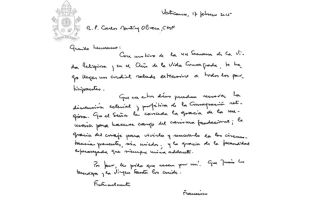 Vaticano, 17 febrero 2015
R. P. Carlos Martínez Oliveras, CMF
Querido hermano:
Con motivo de la 44 Semana de la Vi-
da Religiosa y en el Año de la Vida Consagrada, te ha-
go llegar un cordial saludo extensivo a todos los par-
ticipantes.
Que en estos días puedan renovar la
dimensión eclesial y profética de la Consagración reli-
giosa. Que el Señor les conceda la gracia de la me-
moria para hacerse cargo del carisma fundacional; la
gracia del coraje para vivirlo y en las circuns-
tancias presentes, sin miedo; y la gracia de la fecundidad
esperanzada que siempre mira adelante.
Por favor, les pido que recen por mí. Que Jesús los
bendiga y la Virgen Santa los cuide.
Fraternalmente
Francisco